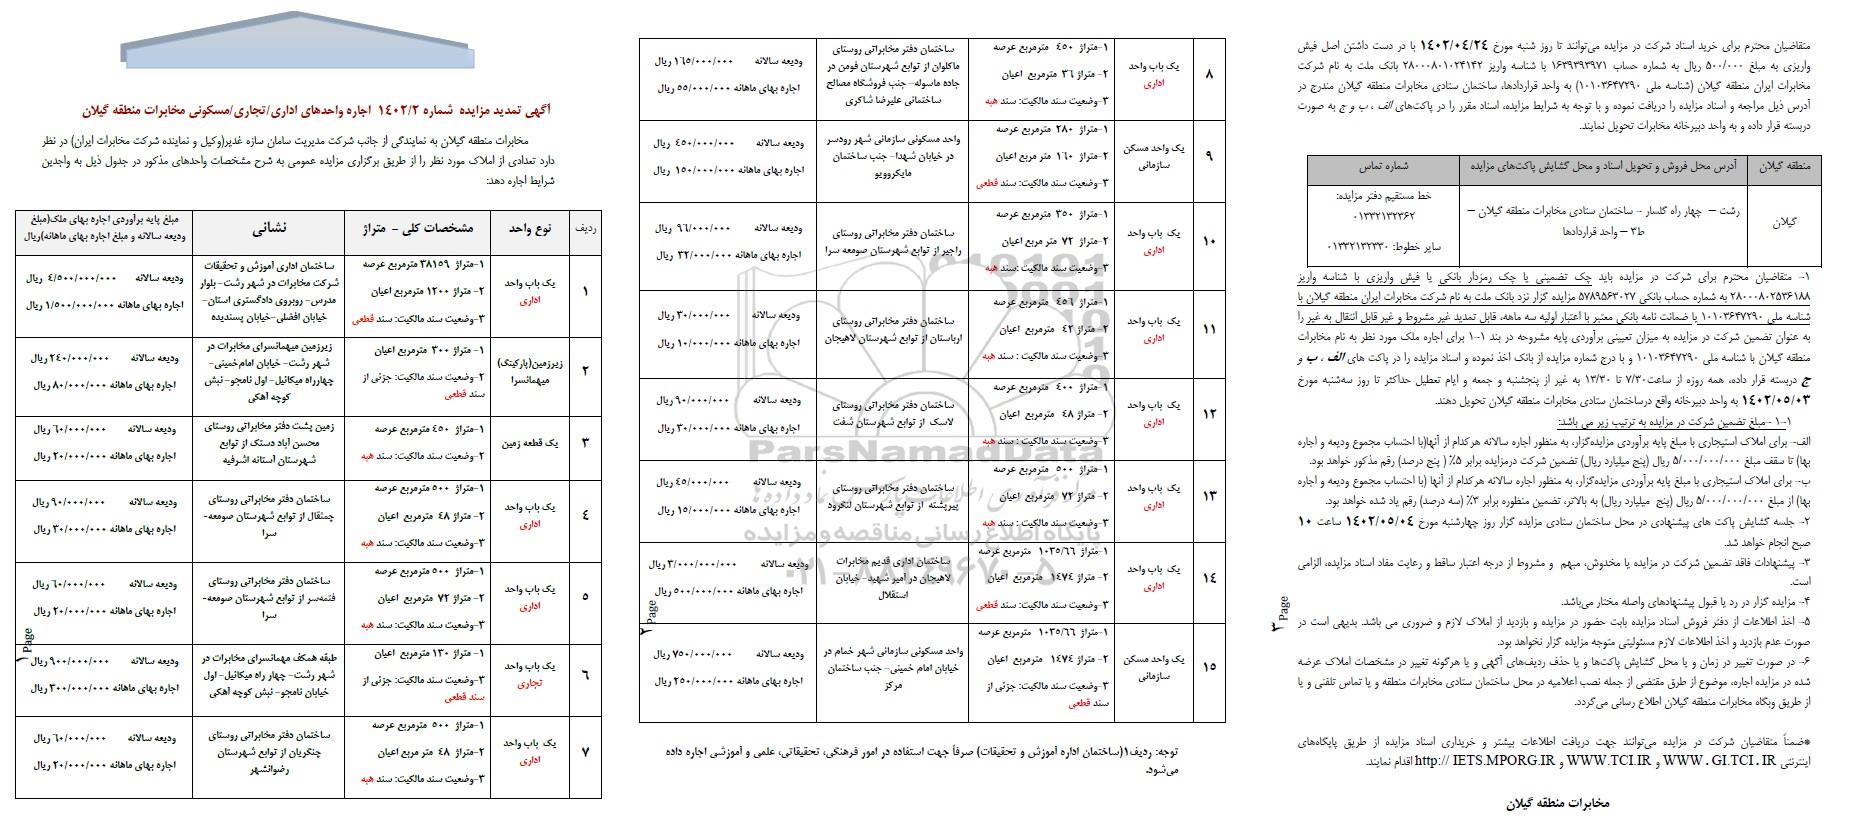 آگهی تمدید مزایده شماره ۱۴۰۲/۲ اجاره واحدهای اداری/تجاری/مسکونی مخابرات منطقه گیلان
مخابرات منطقه گیلان به نمایندگی از جانب شرکت مدیریت سامان سازه غدیر(وکیل و نماینده شرکت مخابرات ایران) در نظر
دارد تعدادی از املاک مورد نظر را از طریق برگزاری مزایده عمومی به شرح مشخصات واحدهای مذکور در جدول ذیل به واجدین
شرایط اجاره دهد:
ردیف
نوع واحد
مشخصات کلی – متراژ
نشانی
مبلغ پایه برآوردی اجاره بهای ملک(مبلغ
ودیعه سالانه و مبلغ اجاره بهای ماهانه)ریال
۱
یک باب واحد
اداری
۱-متراژ ۳۸۱۵۹ مترمربع عرصه
۲- متراژ ۱۲۰۰ مترمربع اعیان
۳-وضعیت سند مالکیت: سند قطعی
ساختمان اداری آموزش و تحقیقات
شرکت مخابرات در شهر رشت- بلوار
مدرس- روبروی دادگستری استان-
خیابان افضلی-خیابان پسندیده
ودیعه سالانه ۴/۵۰۰/۰۰۰/۰۰۰ ریال
اجاره بهای ماهانه ۱/۵۰۰/۰۰۰/۰۰۰ ریال
۲
زیرزمین(پارکینگ)
میهمانسرا
۱- متراژ ۳۰۰ مترمربع اعیان
۲-وضعیت سند مالکیت: جزئی از
سند قطعی
زیرزمین میهمانسرای مخابرات در
شهر رشت- خیابان امام‌خمینی-
چهارراه میکائیل- اول نامجو- نبش
کوچه آهکی
ودیعه سالانه ۲۴۰/۰۰۰/۰۰۰ ریال
اجاره بهای ماهانه ۸۰/۰۰۰/۰۰۰ ریال
۳
یک قطعه زمین
۱-متراژ ۴۵۰ مترمربع عرصه
۲-وضعیت سند مالکیت: سند هبه
زمین پشت دفتر مخابراتی روستای
محسن آباد دستک از توابع
شهرستان آستانه اشرفیه
ودیعه سالانه ۶۰/۰۰۰/۰۰۰ ریال
اجاره بهای ماهانه ۲۰/۰۰۰/۰۰۰ ریال
۴
یک باب واحد
اداری
۱-متراژ ۵۰۰ مترمربع عرصه
۲- متراژ ۴۸ مترمربع اعیان
۳-وضعیت سند مالکیت: سند هبه
ساختمان دفتر مخابراتی روستای
چمثقال از توابع شهرستان صومعه-
سرا
ودیعه سالانه ۹۰/۰۰۰/۰۰۰ ریال
اجاره بهای ماهانه ۳۰/۰۰۰/۰۰۰ ریال
۵
یک باب واحد
اداری
۱-متراژ ۵۰۰ مترمربع عرصه
۲- متراژ ۷۲ مترمربع اعیان
۳-وضعیت سند مالکیت: سند هبه
ساختمان دفتر مخابراتی روستای
فتمه‌سر از توابع شهرستان صومعه-
سرا
ودیعه سالانه ۶۰/۰۰۰/۰۰۰ ریال
اجاره بهای ماهانه ۲۰/۰۰۰/۰۰۰ ریال
۶
یک باب واحد
تجاری
۱-متراژ ۱۳۰ مترمربع اعیان
۳-وضعیت سند مالکیت: جزئی از
سند قطعی
طبقه همکف مهمانسرای مخابرات در
شهر رشت- چهار راه میکائیل- اول
خیابان نامجو- نبش کوچه آهکی
ودیعه سالانه ۹۰۰/۰۰۰/۰۰۰ ریال
اجاره بهای ماهانه ۳۰۰/۰۰۰/۰۰۰ ریال
۷
یک باب واحد
اداری
۱-متراژ ۵۰۰ مترمربع عرصه
۲-متراژ ۴۸ متر مربع اعیان
۳-وضعیت سند مالکیت: سند هبه
ساختمان دفتر مخابراتی روستای
چنگریان از توابع شهرستان
رضوانشهر
ودیعه سالانه ۶۰/۰۰۰/۰۰۰ ریال
اجاره بهای ماهانه ۲۰/۰۰۰/۰۰۰ ریال
Page ۱
۸
یک باب واحد
اداری
۱-متراژ ۴۵۰ مترمربع عرصه
۲- متراژ ۳۶ مترمربع اعیان
۳-وضعیت سند مالکیت: سند هبه
ساختمان دفتر مخابراتی روستای
ماکلوان از توابع شهرستان فومن در
جاده ماسوله- جنب فروشگاه مصالح
ساختمانی علیرضا شاکری
ودیعه سالانه ۱۶۵/۰۰۰/۰۰۰ ریال
اجاره بهای ماهانه ۵۵/۰۰۰/۰۰۰ ریال
۹
یک واحد مسکن
سازمانی
۱-متراژ ۲۸۰ مترمربع عرصه
۲-متراژ ۱۶۰ متر مربع اعیان
۳-وضعیت سند مالکیت: سند قطعی
واحد مسکونی سازمانی شهر رودسر
در خیابان شهدا- جنب ساختمان
مایکروویو
ودیعه سالانه ۴۵۰/۰۰۰/۰۰۰ ریال
اجاره بهای ماهانه ۱۵۰/۰۰۰/۰۰۰ ریال
۱۰
یک باب واحد
اداری
۱-متراژ ۳۵۰ مترمربع عرصه
۲-متراژ ۷۲ متر مربع اعیان
۳-وضعیت سند مالکیت :سند هبه
ساختمان دفتر مخابراتی روستای
راجیر از توابع شهرستان صومعه سرا
ودیعه سالانه ۹۶/۰۰۰/۰۰۰ ریال
اجاره بهای ماهانه ۳۲/۰۰۰/۰۰۰ ریال
۱۱
یک باب واحد
اداری
۱-متراژ ۴۵۶ مترمربع عرصه
۲- متراژ ۴۲ مترمربع اعیان
۳-وضعیت سند مالکیت : سند هبه
ساختمان دفتر مخابراتی روستای
ارباستان از توابع شهرستان لاهیجان
ودیعه سالانه ۳۰/۰۰۰/۰۰۰ ریال
اجاره بهای ماهانه ۱۰/۰۰۰/۰۰۰ ریال
۱۲
یک باب واحد
اداری
۱-متراژ ۴۰۰ مترمربع عرصه
۲- متراژ ۴۸ مترمربع اعیان
۳-وضعیت سند مالکیت : سند هبه
ساختمان دفتر مخابراتی روستای
لاسک از توابع شهرستان شفت
ودیعه سالانه ۹۰/۰۰۰/۰۰۰ ریال
اجاره بهای ماهانه ۳۰/۰۰۰/۰۰۰ ریال
۱۳
یک باب واحد
اداری
۱-متراژ ۵۰۰ مترمربع عرصه
۲-متراژ ۷۲ مترمربع اعیان
۳-وضعیت سند مالکیت : سند هبه
ساختمان دفتر مخابراتی روستای
پیرپشته از توابع شهرستان لنگرود
ودیعه سالانه ۴۵/۰۰۰/۰۰۰ ریال
اجاره بهای ماهانه ۱۵/۰۰۰/۰۰۰ ریال
۱۴
یک باب واحد
اداری
۱-متراژ ۱۰۳۵/۶۶ مترمربع عرصه
۲- متراژ ۱۴۷۴ مترمربع اعیان
۳-وضعیت سند مالکیت: سند قطعی
ساختمان اداری قدیم مخابرات
لاهیجان در امیر شهید- خیابان
استقلال
ودیعه سالانه ۳/۰۰۰/۰۰۰/۰۰۰ ریال
اجاره بهای ماهانه ۵۰۰/۰۰۰/۰۰۰ ریال
۱۵
یک واحد مسکن
سازمانی
۱-متراژ ۱۰۳۵/۶۶ مترمربع عرصه
۲- متراژ ۱۴۷۴ مترمربع اعیان
۳-وضعیت سند مالکیت: جزئی از
سند قطعی
واحد مسکونی سازمانی شهر خمام در
خیابان امام خمینی- جنب ساختمان
مرکز
ودیعه سالانه ۷۵۰/۰۰۰/۰۰۰ ریال
اجاره بهای ماهانه ۲۵۰/۰۰۰/۰۰۰ ریال
توجه: ردیف۱(ساختمان اداره آموزش و تحقیقات) صرفاً جهت استفاده در امور فرهنگی، تحقیقاتی، علمی و آموزشی اجاره داده
می‌شود.
Page ۲
ParsNamadData
پایگاه اطلاع رسانی مناقصه و مزایده
۰۲۱-۸۸۳۴۹۶۷۰-۵
متقاضیان محترم برای خرید اسناد شرکت در مزایده می‌توانند تا روز شنبه مورخ ۱۴۰۲/۰۴/۲۴ با در دست داشتن اصل فیش
واریزی به مبلغ ۵۰۰/۰۰۰ ریال به شماره حساب ۱۶۳۹۳۹۳۹۷۱ با شناسه واریز ۲۸۰۰۰۸۰۱۰۲۴۱۴۲ بانک ملت به نام شرکت
مخابرات ایران منطقه گیلان (شناسه ملی ۱۰۱۰۳۶۴۷۲۹۰) به واحد قراردادها، ساختمان ستادی مخابرات منطقه گیلان مندرج در
آدرس ذیل مراجعه و اسناد مزایده را دریافت نموده و با توجه به شرایط مزایده، اسناد مقرر را در پاکت‌های الف ، ب و ج به صورت
دربسته قرار داده و به واحد دبیرخانه مخابرات تحویل نمایند.
منطقه گیلان
آدرس محل فروش و تحویل اسناد و محل گشایش پاکت‌های مزایده
شماره تماس
گیلان
رشت – چهار راه گلسار - ساختمان ستادی مخابرات منطقه گیلان –
ط۳ – واحد قراردادها
خط مستقیم دفتر مزایده:
۰۱۳۳۲۱۳۲۳۶۲
سایر خطوط: ۰۱۳۳۲۱۳۲۳۳۰
۱- متقاضیان محترم برای شرکت در مزایده باید چک تضمینی یا چک رمزدار بانکی یا فیش واریزی با شناسه واریز
۲۸۰۰۰۸۰۲۵۳۶۱۸۸ به شماره حساب بانکی ۵۷۸۹۵۶۳۰۲۷ مزایده گزار نزد بانک ملت به نام شرکت مخابرات ایران منطقه گیلان با
شناسه ملی ۱۰۱۰۳۶۴۷۲۹۰ یا ضمانت نامه بانکی معتبر با اعتبار اولیه سه ماهه، قابل تمدید غیر مشروط و غیر قابل انتقال به غیر را
به عنوان تضمین شرکت در مزایده به میزان تعیینی برآوردی پایه مشروحه در بند ۱-۱ برای اجاره ملک مورد نظر به نام مخابرات
منطقه گیلان با شناسه ملی ۱۰۱۰۳۶۴۷۲۹۰ و با درج شماره مزایده از بانک اخذ نموده و اسناد مزایده را در پاکت های الف ، ب و
ج دربسته قرار داده، همه روزه از ساعت۷/۳۰ تا ۱۳/۳۰ به غیر از پنجشنبه و جمعه و ایام تعطیل حداکثر تا روز سه‌شنبه مورخ
۱۴۰۲/۰۵/۰۳ به واحد دبیرخانه واقع درساختمان ستادی مخابرات منطقه گیلان تحویل دهند.
۱-۱ -مبلغ تضمین شرکت در مزایده به ترتیب زیر می باشد:
الف- برای املاک استیجاری با مبلغ پایه برآوردی مزایده‌گزار، به منظور اجاره سالانه هرکدام از آنها(با احتساب مجموع ودیعه و اجاره
بها) تا سقف مبلغ ۵/۰۰۰/۰۰۰/۰۰۰ ریال (پنج میلیارد ریال) تضمین شرکت درمزایده برابر ۵٪ ( پنج درصد) رقم مذکور خواهد بود.
ب- برای املاک استیجاری با مبلغ پایه برآوردی مزایده‌گزار، به منظور اجاره سالانه هرکدام از آنها (با احتساب مجموع ودیعه و اجاره
بها) از مبلغ ۵/۰۰۰/۰۰۰/۰۰۰ ریال (پنج میلیارد ریال) به بالاتر، تضمین منظوره برابر ۳٪ (سه درصد) رقم یاد شده خواهد بود.
۲- جلسه گشایش پاکت های پیشنهادی در محل ساختمان ستادی مزایده گزار روز چهارشنبه مورخ ۱۴۰۲/۰۵/۰۴ ساعت ۱۰
صبح انجام خواهد شد.
۳- پیشنهادات فاقد تضمین شرکت در مزایده یا مخدوش، مبهم و مشروط از درجه اعتبار ساقط و رعایت مفاد اسناد مزایده، الزامی
است.
۴- مزایده گزار در رد یا قبول پیشنهادهای واصله مختار می‌باشد.
۵- اخذ اطلاعات از دفتر فروش اسناد مزایده بابت حضور در مزایده و بازدید از املاک لازم و ضروری می باشد. بدیهی است در
صورت عدم بازدید و اخذ اطلاعات لازم مسئولیتی متوجه مزایده گزار نخواهد بود.
۶- در صورت تغییر در زمان و یا محل گشایش پاکت‌ها و یا حذف ردیف‌های آگهی و یا هرگونه تغییر در مشخصات املاک عرضه
شده در مزایده اجاره، موضوع از طرق مقتضی از جمله نصب اعلامیه در محل ساختمان ستادی مخابرات منطقه و یا تماس تلفنی و یا
از طریق وبگاه مخابرات منطقه گیلان اطلاع رسانی می‌گردد.
*ضمناً متقاضیان شرکت در مزایده می‌توانند جهت دریافت اطلاعات بیشتر و خریداری اسناد مزایده از طریق پایگاه‌های
اینترنتی WWW . GI.TCI . IR و WWW.TCI.IR و http:// IETS.MPORG.IR اقدام نمایند.
مخابرات منطقه گیلان
Page ۳